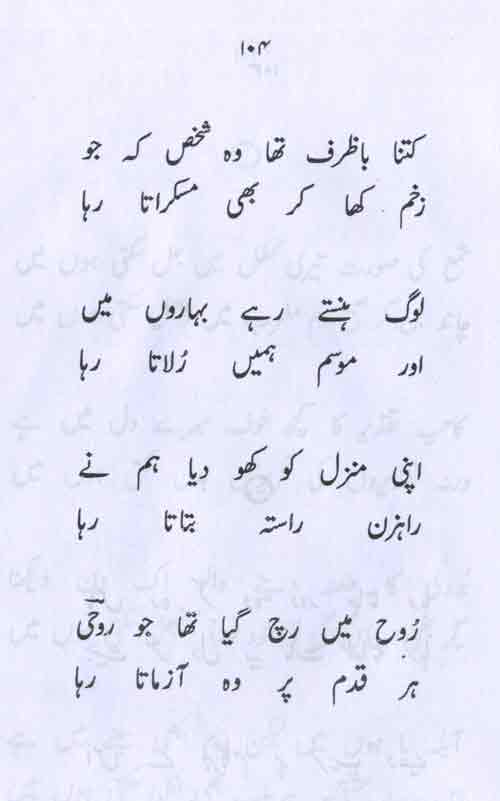 ۱۰۴
کتنا باظرف تھا وہ شخص کہ جو
زخم کھا کر بھی مسکراتا رہا
لوگ ہنستے رہے بہاروں میں
اور موسم ہمیں رُلاتا رہا
اپنی منزل کو کھو دیا ہم نے
راہزن راستہ بتاتا رہا
رُوح میں رچ گیا تھا جو روحیؔ
ہر قدم پر وہ آزماتا رہا